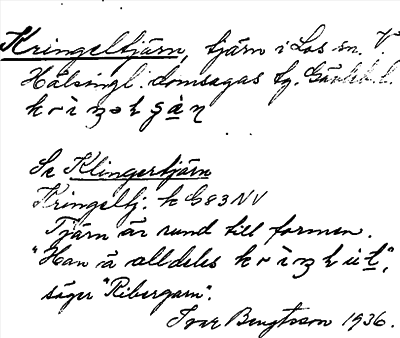 Kringeltjärn, tjärn i Los sn. V.
Hälsingl. domsagas tg. Gävleb. l.
Se Klingertjärn
Kringeltj. k G83NV
Tjärn är rund till formen.
"Han ä alldeles
säger "Ribergarn".
Ivar Bengtsson 1936.